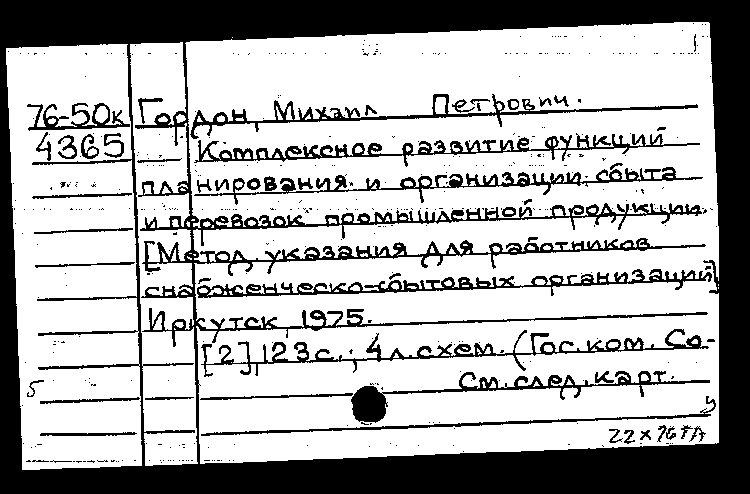 76-50к Гордон, Михаил Петрович.
4365 Комплексное развитие функций
планирования и организации сбыта
и перевозок промышленной продукции.
[Метод. указания для работников
снабженческо-сбытовых организаций].
Иркутск, 1975.
[2], 123 с.; 4 л. схем. (Гос. ком. Со-
См. след. карт.
5
22 X 76